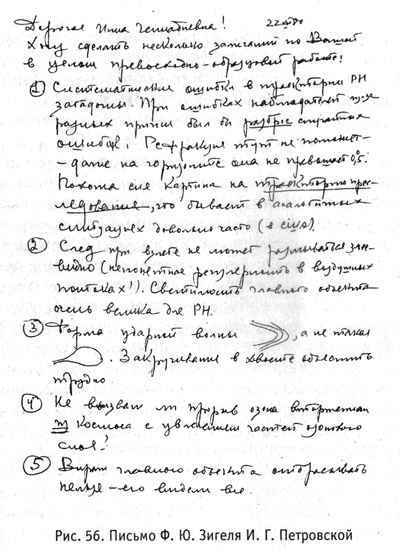 Дорогая Инна Геннадиевна!
Хочу сделать несколько замечаний по Вашей
в целом превосходно-образцовой работе!
① Систематические ошибки в траектории РН
загадочны. При ошибках наблюдателей
разных причин был бы разброс
ошибок! Рефракция тут не поможет
- даже на горизонте она не превышает 0,5.
Похожа сия картина на траекторию прес-
ледования, что бывает в аналогичных
ситуациях довольно часто
② След при взлете не может размываться
видно (непонятная регулярность в воздушных
потоках!). Светимость главного объекта
очень велика для РН.
③ Форма ударной волны , а не такая
. Закручивание в хвосте объяснить
трудно
④ Не вызван ли прорыв озона вторжением
из космоса с увлечением частей озонового
слоя?
⑤ Вираж главного объекта отбрасывать
нельзя - его видели все.
Рис. 56. Письмо Ф. Ю. Зигеля И. Г. Петровской